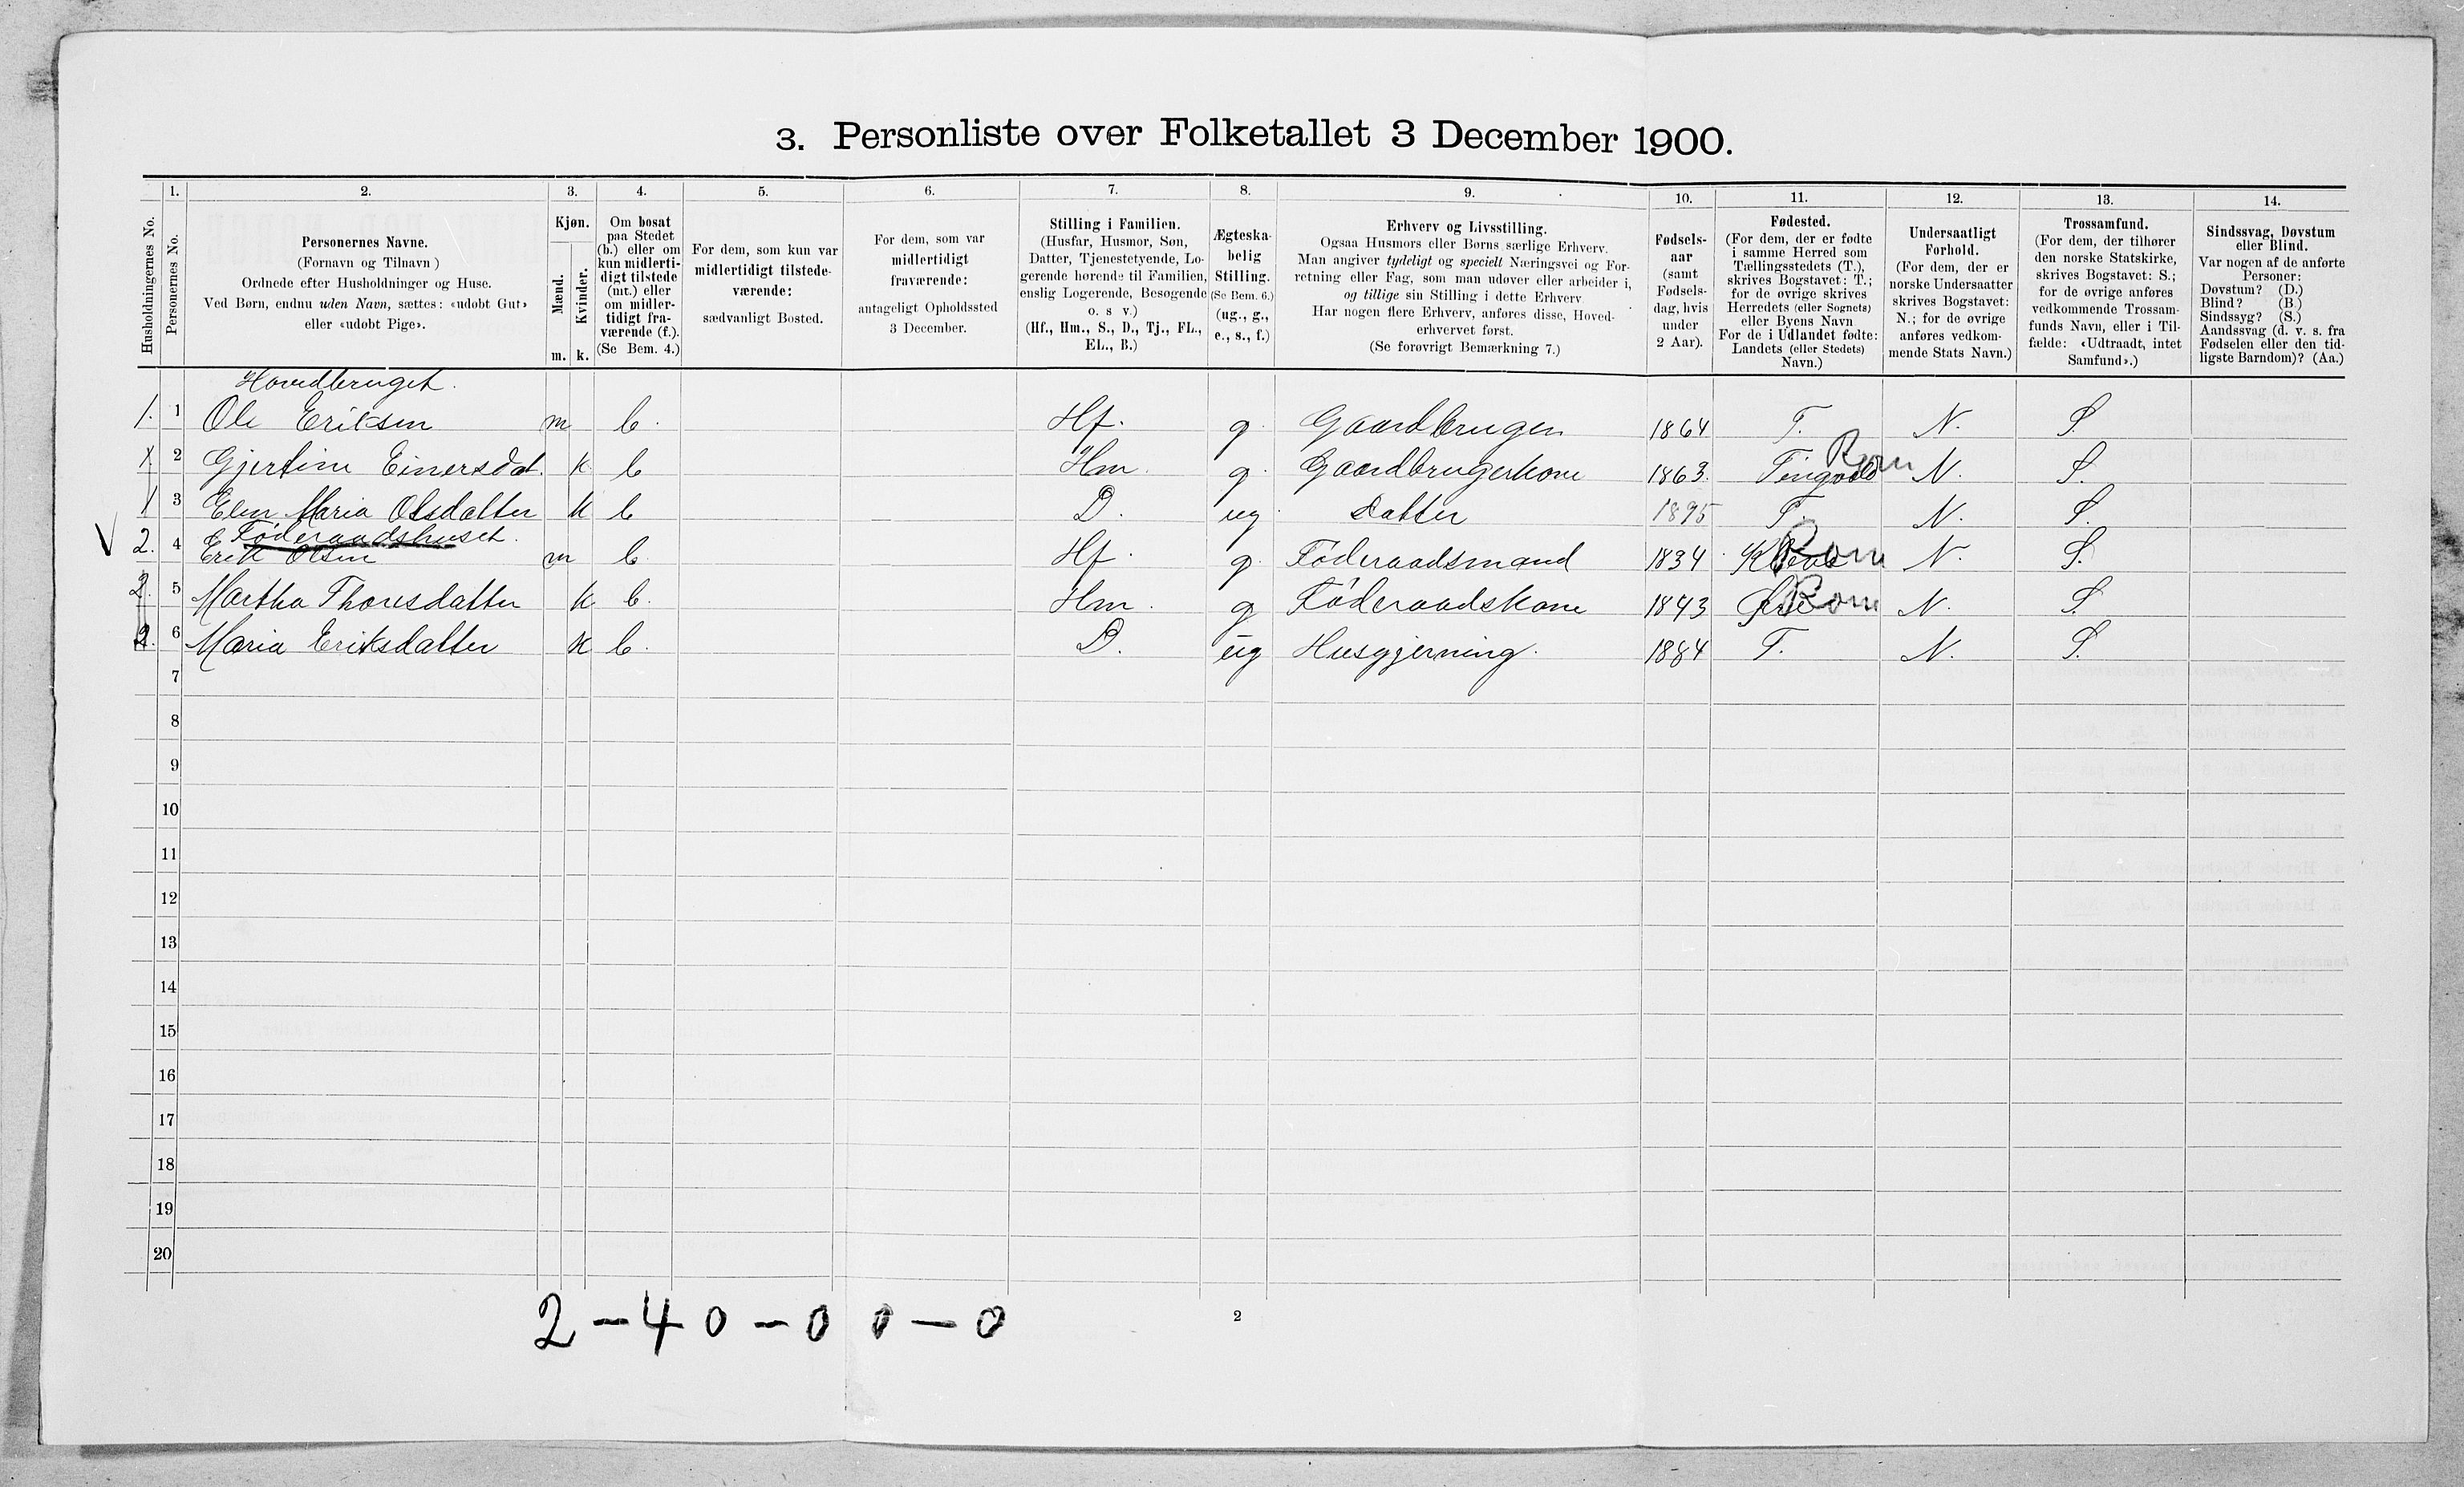 3. Personliste over Folketallet 3 December 1900.
1. 2. 3. 4. 5. 6. 7. 8. 9. 10. 11. 12. 13. 14.
Husholdningernes No.
Personernes No.
Personernes Navne.
(Fornavn og Tilnavn )
Ordnede efter Husholdninger og Huse.
Ved Børn, endnu uden Navn, sættes: «udøbt Gut»
eller «udøbt Pige».
Kjøn.
Mænd.
Kvinder.
m. k.
Om bosat
paa Stedet
(b.) eller om
kun midlerti-
digt tilstede
(mt.) eller
om midler-
tidigt fra-
værende (f.).
(Se Bem. 4.)
For dem, som kun var
midlertidigt tilstede-
værende:
sædvanligt Bosted.
For dem, som var
midlertidigt
fraværende:
antageligt Opholdssted
3 December.
Stilling i Familien.
(Husfar, Husmor, Søn,
Datter, Tjenestetyende, Lo-
gerende hørende til Familien,
enslig Logerende, Besøgende
o. s v.)
(Hf., Hm., S., D., Tj., FL.,
EL., B.)
Ægteska-
belig
Stilling.
(Se Bem. 6.)
(ug., g.,
e., s., f.)
Erhverv og Livsstilling.
Ogsaa Husmors eller Børns særlige Erhverv.
Man angiver tydeligt og specielt Næringsvei og For-
retning eller Fag, som man udøver eller arbeider i,
og tillige sin Stilling i dette Erhverv.
Har nogen flere Erhverv, anføres disse, Hoved-
erhvervet først.
(Se forøvrigt Bemærkning 7.)
Fødsels-
aar
(samt
Fødsels-
dag, hvis
under
2 Aar).
Fødested.
(For dem, der er fødte
i samme Herred som
Tællingsstedets (T.),
skrives Bogstavet: T.;
for de øvrige skrives
Herredets (eller Sognets)
eller Byens Navn
For de i Udlandet fødte:
Landets (eller Stedets)
Navn.)
Undersaatligt
Forhold.
(For dem, der er
norske Undersaatter
skrives Bogstavet:
N.; for de øvrige
anføres vedkom-
mende Stats Navn.)
Trossamfund.
(For dem, der tilhører
den norske Statskirke,
skrives Bogstavet: S.;
for de øvrige anføres
vedkommende Trossam-
funds Navn, eller i Til-
fælde: «Udtraadt, intet
Samfund».)
Sindssvag, Døvstum
eller Blind.
Var nogen af de anførte
Personer:
Døvstum? (D.)
Blind? (B)
Sindssyg? (S.)
Aandssvag (d. v. s. fra
Fødselen eller den tid-
ligste Barndom)? (Aa.)
Hovedbruget.
1. 1 Ole Eriksen m b. Hf. g. Gaardbruger 1864 T. N. S.
1 2 Gjertine Einersdat. k b Hm. g. Gaardbrugerkone 1863. Tingvold Rom N. S.
1 3 Elen Maria Olsdatter k b D. ug. Datter 1895 T. N. S.
Føderaadshuset.
V 2. 4 Erik Olsen m b. Hf. g. Føderaadsmand 1834 Rom N. S.
2. 5 Martha Thoresdatter k b. Hm. g Føderaadskone 1843 Rom N. S.
2. 6 Maria Eriksdatter k b. D. ug Husgjerning. 1884 T. N. S.
7
8
9
10
11
12
13
14
15
16
17
18
19
20
2-40-00-0
2